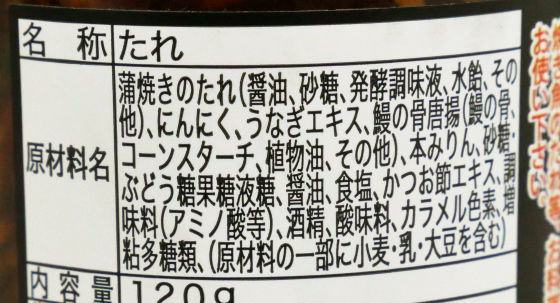 名称 たれ
原材料名
蒲焼きのたれ(醤油、砂糖、発酵調味液、水飴、その
他)、にんにく、うなぎエキス、鰻の骨唐揚(鰻の骨、
コーンスターチ、植物油、その他)、本みりん、砂糖・
ぶどう糖果糖液糖、醤油、食塩、かつお節エキス、調
味料(アミノ酸等)、酒精、酸味料、カラメル色素、増
粘多糖類、(原材料の一部に小麦・乳・大豆を含む)
内容量 120g
お使い下さい。